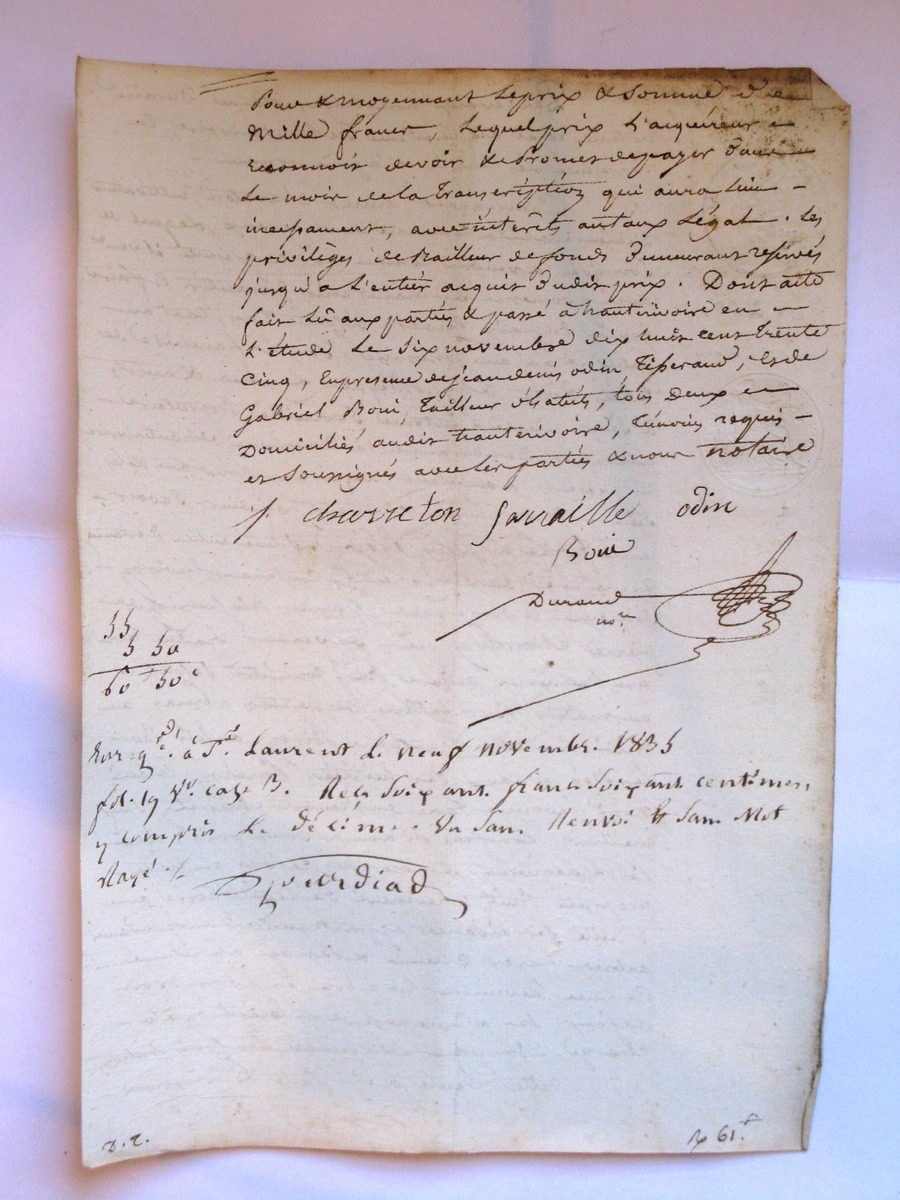 Pour & moyennant le prix & somme de
Mille francs, lequel prix l'acquéreur
reconnoit devoir & promet de payer dans
le mois de la transcription qui aura lieu
incessament, avec intérêts au taux légal. les
privilèges de Bailleur de fonds demeurant réservés
jusqu'à l'entier acquit dudit prix. Dont acte
fait lû aux parties & passé à hauterivoire en
l'étude le six novembre dix huit cent trente
cinq, En presence de jean denis odin, Tisserand, et de
Gabriel Boui, Tailleur d'habits, tous deux
Domiciliés audit hauterivoire, témoins requis
et soussignés avec les parties & nous notaire
J. charreton Sarraille odin
Boui
Durand
no.re
55
5 50
60 f 50 c
Enregé. à St. Laurent le neuf novembre 1835
fol. 19 Vo. case 3. Reçu Soixante francs Soixante centimes,
y compris le décime. Vu Sans Renvoi et Sans Mot
Rayé ./.
Gourdiad
D. T.
61 f